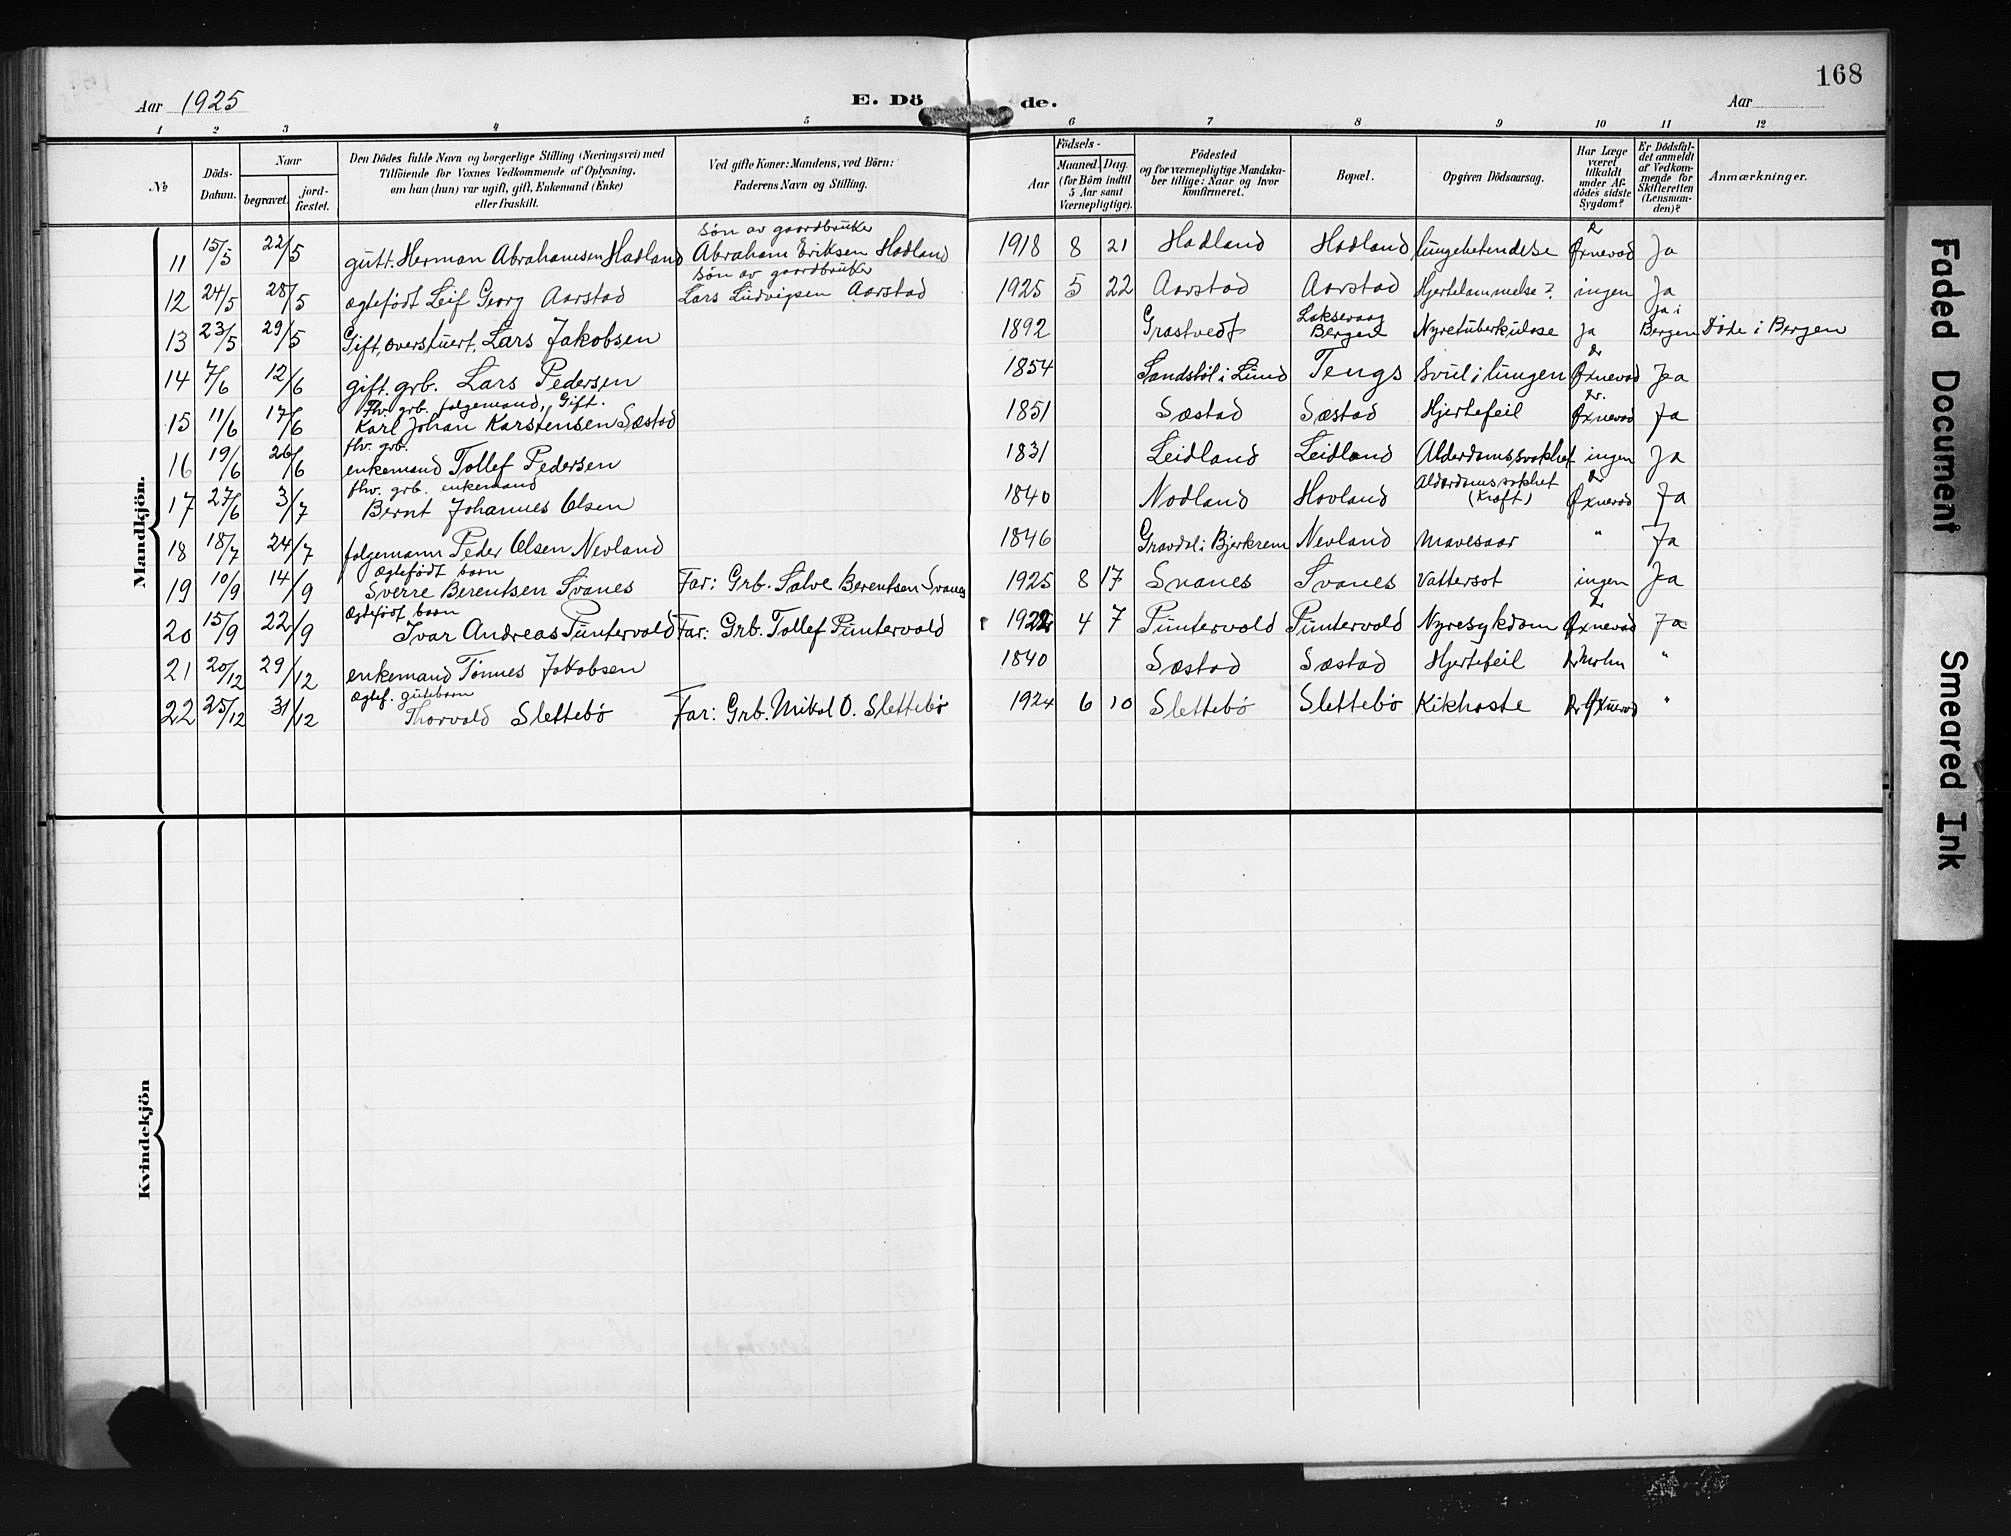 168
Aar 1925
E. Dö de.
Aar
1 2 3 4 5 6 7 8 9 10 11 12
No
Döds-Datum.
Naar
begravet.
jord-fæstet.
Den Dödes fulde Navn og borgerlige Stilling (Næringsvei) med
Tilföiende for Voxnes Vedkommende af Oplysning,
om han (hun) var ugift, gift, Enkemand (Enke)
eller fraskilt.
Ved gifte Koner: Mandens, ved Börn:
Faderens Navn og Stilling.
Födsels-
Aar
Maaned. Dag.
(for Börn indtil
5 Aar samt
Værnepligtige).
Födested
og for værnepligtige Mandska-
ber tillige: Naar og hvor
konfirmeret.
Bopæl.
Opgiven Dödsaarsag.
Har Læge
været
tilkaldt
under Af-
dödes sidste
Sygdom?
Er Dödsfal-
det anmeldt
af Vedkom-
mende for
Skifteretten
(Lensman-
den)?
Anmærkninger.
Mandkjön.
11 15/5 22/5 gutt. Herman Abrahamsen Hadland søn av gaardbruker Abraham Eriksen Hadland 1918 8 21 Hadland Hadland lungebetendelse Dr Øxnevad Ja
12 24/5 28/5 ægtefødt Leif Georg Aarstad søn av gaardbruker Lars Ludvigsen Aarstad 1925 5 22 Aarstad Aarstad Hjertelammelse? ingen Ja
13 23/5 29/5 Gift, overstuert, Lars Jakobsen 1892 Grastvedt Laksevaag Bergen Nyretuberkulose Ja Ja i Bergen Døde i Bergen
14 7/6 12/6 gift. grb. Lars Pedersen 1854 Sandstøl i Lund Tengs Svul i lungen Dr Øxnevad Ja
15 11/6 17/6 Fhv. grb. folgemand, Gift. Karl Johan Karstensen Sæstad 1851 Sæstad Sæstad Hjertefeil Dr. Øxnevad Ja
16 19/6 26/6 fhv. grb. enkemand Tollef Pedersen 1831 Leidland Leidland Alderdomssvakhet ingen Ja
17 27/6 3/7 fhv. grb. enkemand Bernt Johannes Olsen 1840 Nodland Hovland Alderdomssvakhet (Kraft) Dr Øxnevad Ja
18 18/7 24/7 folgemann Peder Olsen Nevland 1846 Gravdal i Bjerkreim Nevland Mavesaar " Ja
19 10/9 14/9 Ægtefødt barn Sverre Berentsen Svanes Far: Grb. Salve Berentsen Svanes 1925 8 17 Svanes Svanes Vattersot ingen Ja
20 15/9 22/9 Ægtefødt barn Ivar Andreas Puntervold Far: Grb. Tollef Puntervold 1922 4 7 Puntervold Puntervold Nyresykdom Dr Øxnevad Ja
21 20/12 29/12 enkemand Tønnes Jakobsen 1840 Sæstad Sæstad Hjertefeil "
22 25/12 31/12 Ægtef. gutebarn Thorvald Slettebø Far: Grb. Mikal O. Slettebø 1924 6 10 Slettebø Slettebø Kikhoste Dr Øxnevad "
Kvindekjön
Faded Document
Smeared Ink